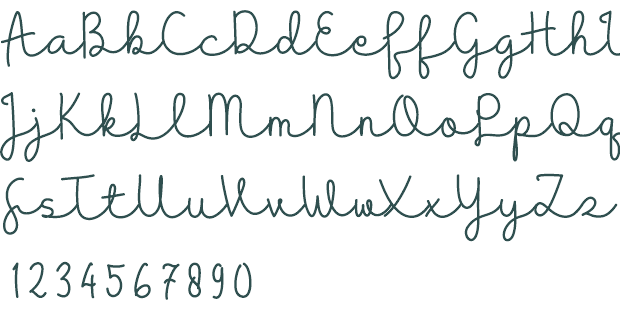 AaBbCcDdEeFfGgHhI
JjKkLlMmNnOoPpQq
SsTtUuVvWwXxYyZz
1234567890